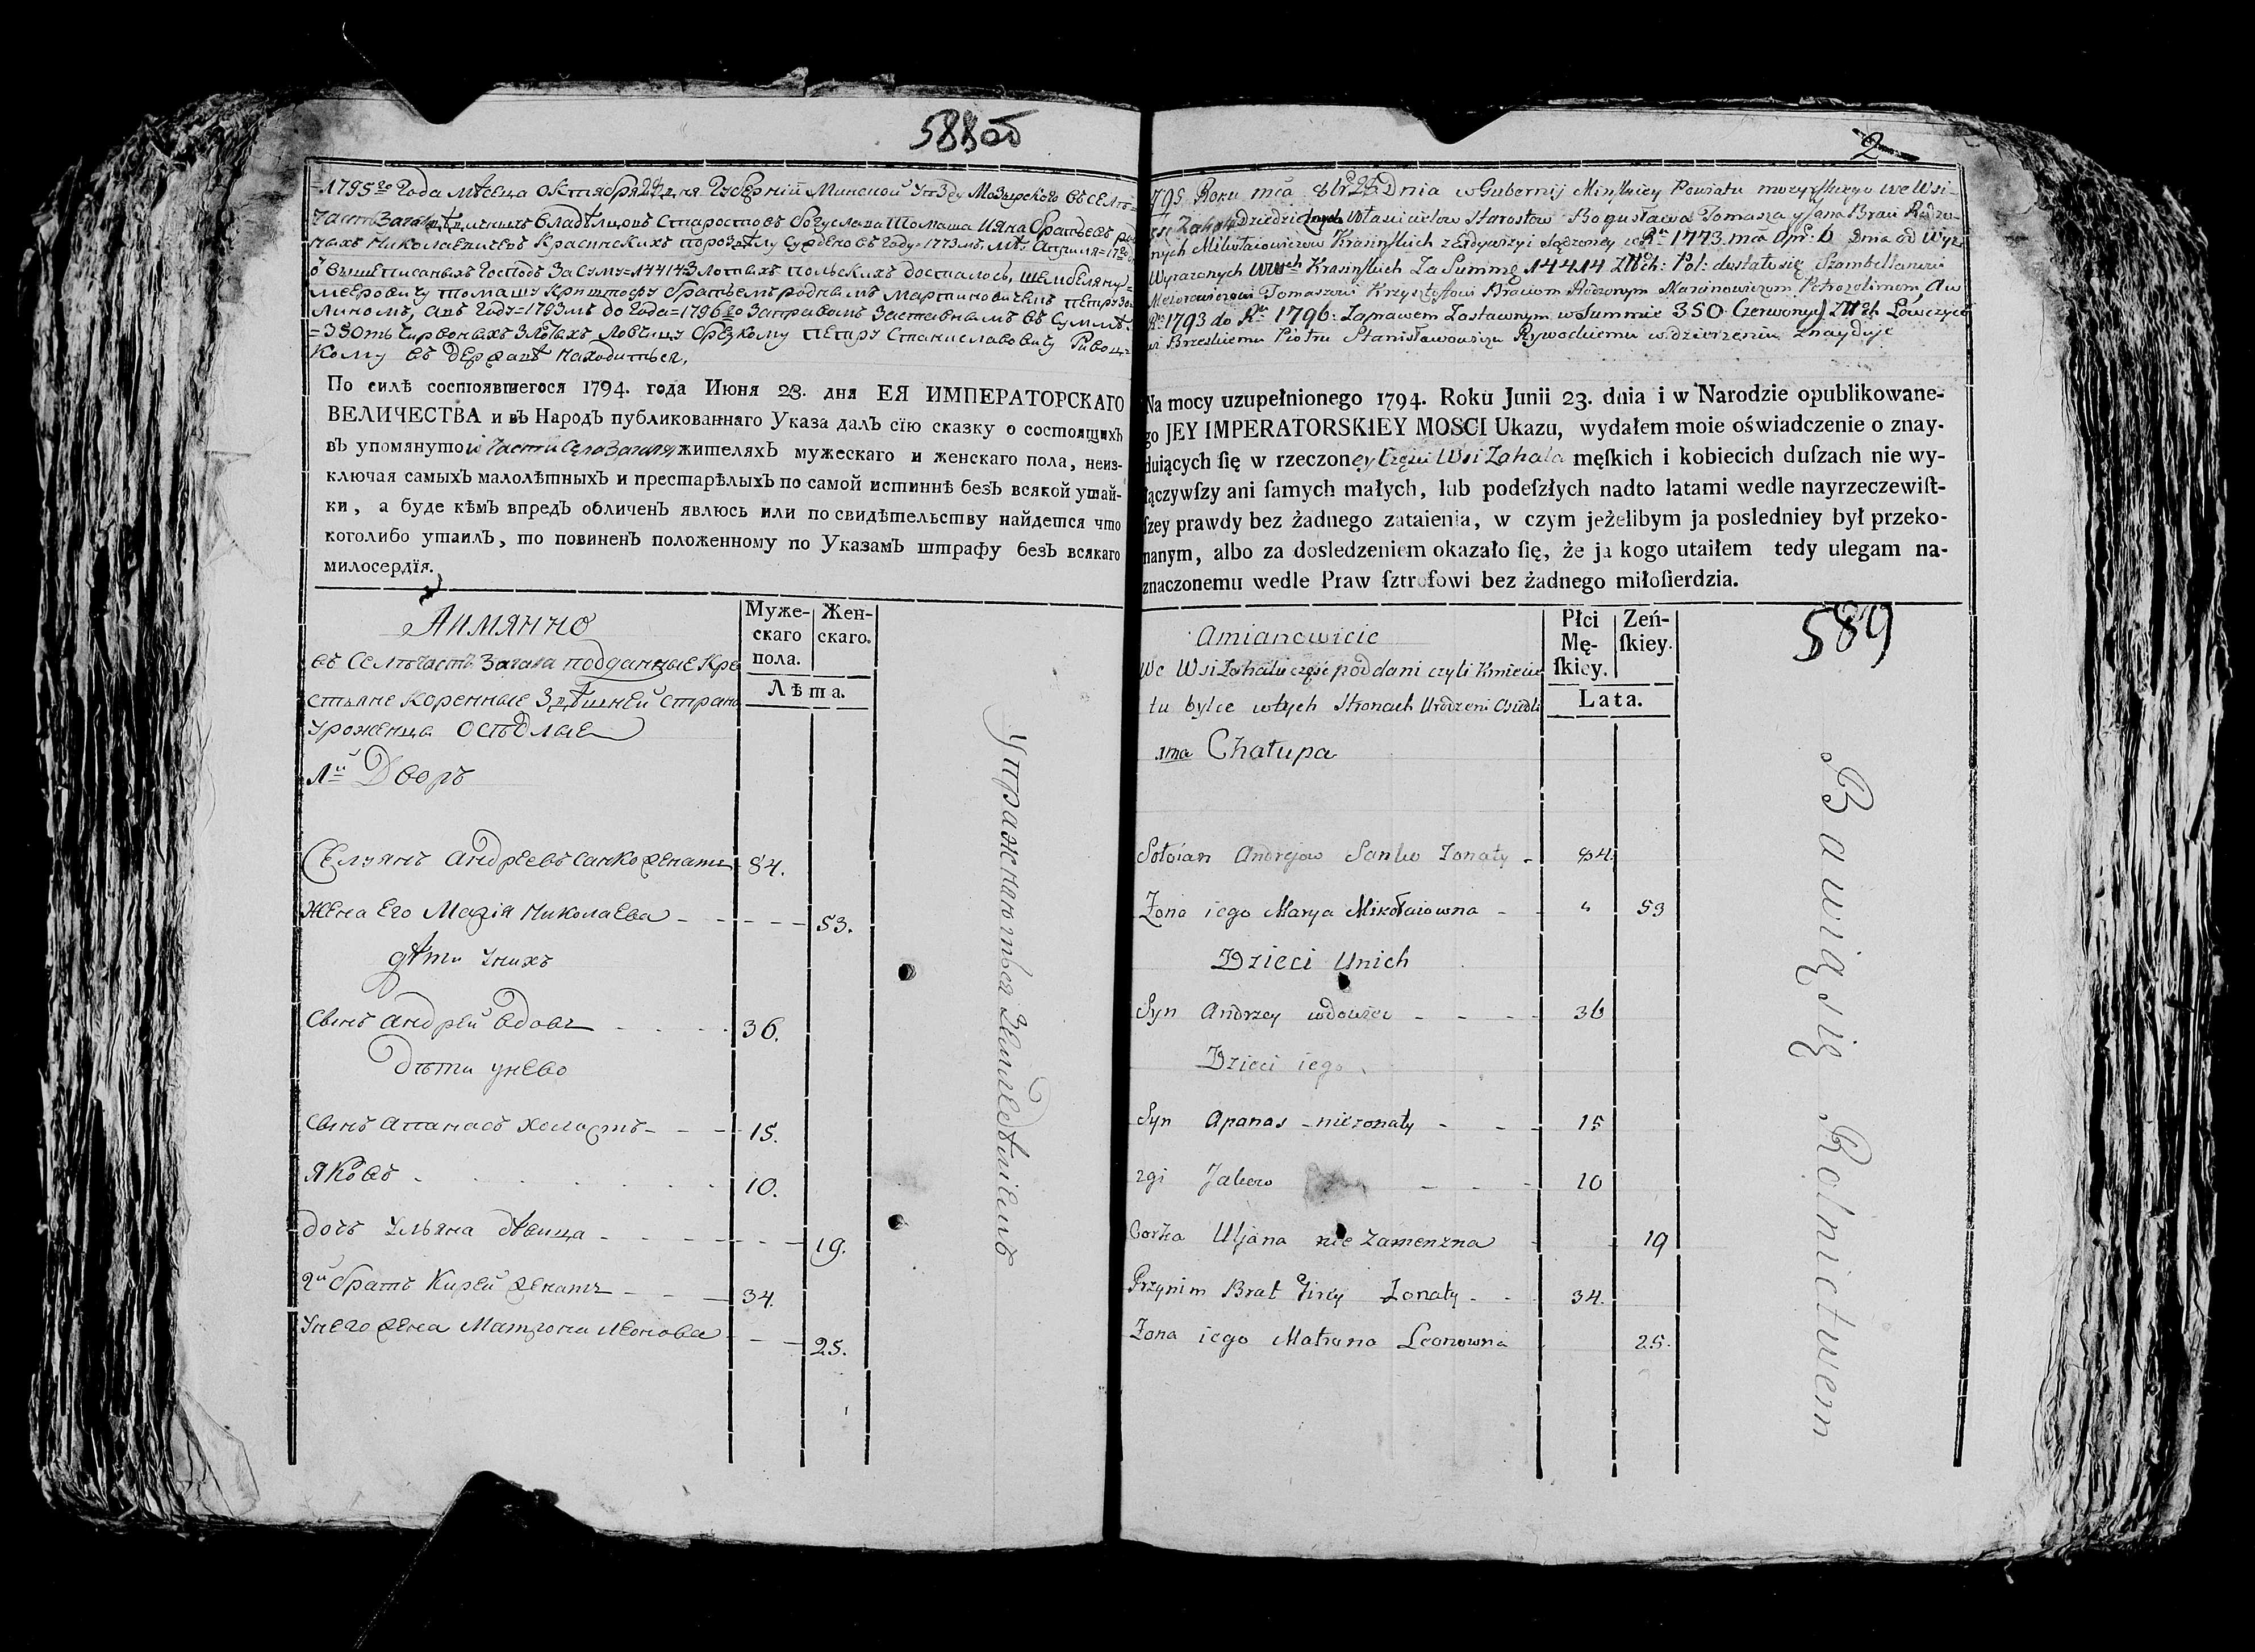 588об
=1795го Года мѣсеца октября дня Губернїй Минской уѣзду Мозырского въ селѣ
Часть Загаля владѣлцовъ Старостовъ Богуслава Томаша Ияна братьевъ
ныхъ Николаевичевъ Красинскихъ по году=1773мъ, мѣ: Апрыля=
о вышеписаныхъ Господъ За суму=14414=Злотыхъ польскихъ досталось, шембеляну=
меѣровичу томашу криштофу братьемъ роднымъ мартиновичемъ петрузо=
линомъ, авъ Году=1793мъ до Года=1796го Заправомъ Заставнымъ въ суммѣ
=350ть Чирвоныхъ Злотыхъ Ловчицу брескому петру станиславовичу Ривоц=
кому въ держанѣ находиться,
По силѣ состоявшегося 1794. года Июня 23. дня ЕЯ ИМПЕРАТОРСКАГО
ВЕЛИЧЕСТВА и въ Народъ публикованнаго Указа далъ сїю сказку о состоящихъ
въ упомянутой Части Села Загаля жителяхъ мужескаго и женскаго пола, неиз-
ключая самыхъ малолѣтныхъ и престарѣлыхъ по самой истиннѣ безъ всякой утай-
ки, а буде кѣмъ впредъ обличенъ явлюсь или по свидѣтельству найдется что
коголибо утаилъ, то повиненъ положенному по Указамъ штрафу безъ всякаго
милосердїя.
Аимянно
Муже-
скаго
пола.
Жен-
скаго.
Лѣта.
въ Селѣ часть Загала подданные кре
стьяне коренные Здѣшней страны
уроженцы осѣдлые
1й Дворъ
Селуянъ андреевъ санко женатъ 84.
жена его Марїя николаева - - - - - 53.
дѣти Унихъ
сынъ андрей вдовъ - - - - 36.
Дѣти унево
сынъ апанасъ холостъ - - - 15.
яковъ - - - - - - 10.
дочъ Ульяна дѣвица - - - - - - 19.
2й братъ Кирей женатъ - - - 34.
Унего жена Матрона леонова - - - 25.
Упражняються Земледѣлиемъ
2
1795 Roku mca 8br Dnia w Gubernij Minskiey Powiatu mozyrskiego we Wsi
Zahala Dziedzicznych Własicielow Starostow Bogusława Tomasza y Jana Braci Rodzo-
nych Mikołaiowiczow Krasinskich w Ru 1773 mca Apr: 6 Dnia od Wyz
Wyrazonych Krasinskich Za Summę 14414 Złłch: Pol: dostało się Szambellanowi
Meierowiczowi Tomaszowi Krzysztofowi Braciom Rodzonym Marcinowiczom Petrozolinom, a w
Ru 1793 do Ru 1796: Zaprawem Zastawnym w Summie 350 Czerwonych Złłch Łowczyce
wi Brzeskiemu Piotru Stanisławowiczu Rywockiemu w dzierżeniu znayduje
Na mocy uzupełnionego 1794. Roku Junii 23. dnia i w Narodzie opublikowane-
go JEY IMPERATORSKIEY MOSCI Ukazu, wydałem moie oświadczenie o znay-
duiących ſię w rzeczoney Częsci Wsi Zahala męſkich i kobiecich duſzach nie wy-
łączywſzy ani ſamych małych, lub podeſzłych nadto latami wedle nayrzeczewiſt-
ſzey prawdy bez żadnego zataienia, w czym jeżelibym ja posledniey był przeko-
nanym, albo za dosledzeniem okazało ſię, że ja kogo utaiłem tedy ulegam na-
znaczonemu wedle Praw ſztrofowi bez żadnego miłoſierdzia.
Amianowicie
Płci
Mę-
ſkiey.
Zeń-
ſkiey.
Lata.
589
We Wsi Zahalu częsć poddani czyli Kmiecie
tu bylce w tych Stronach Urodzeni Osiedli
1ma Chałupa
Sołoian Andrejow Sanko Zonaty - 84.
Zona iego Marya Mikołaiowna - " 53
Dzieci Unich
Syn Andrzey wdowiec - - - - 36
Dzieci iego
Syn Apanas - niezonaty - - - 15
2gi Jakow - - - 10
Corka Uljana nie Zamenzna 19
Przynim Brat Kirey Zonaty - - 34.
Zona iego Matrona Leonowna 25.
Bawią się Rolnictwem